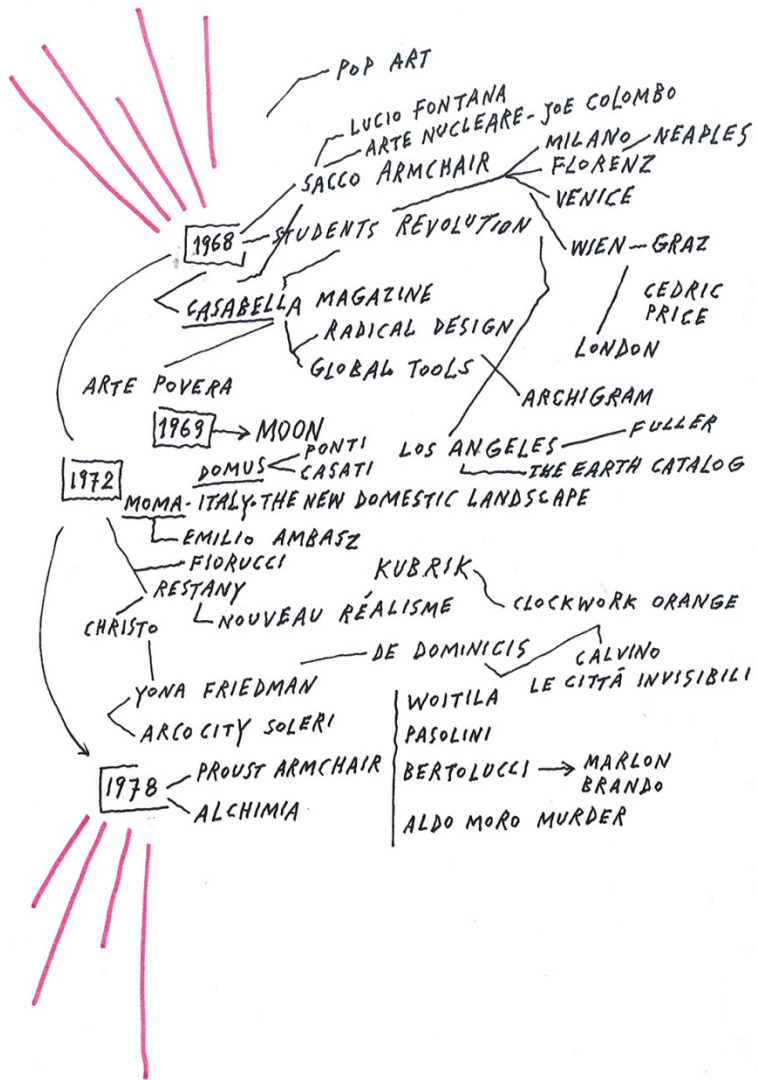 POP ART
LUCIO FONTANA
ARTE NUCLEARE - JOE COLOMBO
SACCO ARMCHAIR
MILANO NEAPLES
FLORENZ
VENICE
1968 STUDENTS REVOLUTION
WIEN - GRAZ
CEDRIC
PRICE
LONDON
CASABELLA MAGAZINE
RADICAL DESIGN
GLOBAL TOOLS
ARTE POVERA
ARCHIGRAM
1969 → MOON
LOS ANGELES FULLER
THE EARTH CATALOG
DOMUS PONTI
CASATI
1972
MOMA - ITALY. THE NEW DOMESTIC LANDSCAPE
EMILIO AMBASZ
FIORUCCI
RESTANY
NOUVEAU RÉALISME
KUBRIK
CLOCKWORK ORANGE
CHRISTO
DE DOMINICIS
CALVINO
LE CITTÁ INVISIBILI
YONA FRIEDMAN
ARCO CITY SOLERI
WOITILA
PASOLINI
BERTOLUCCI → MARLON
BRANDO
ALDO MORO MURDER
1978 PROUST ARMCHAIR
ALCHIMIA